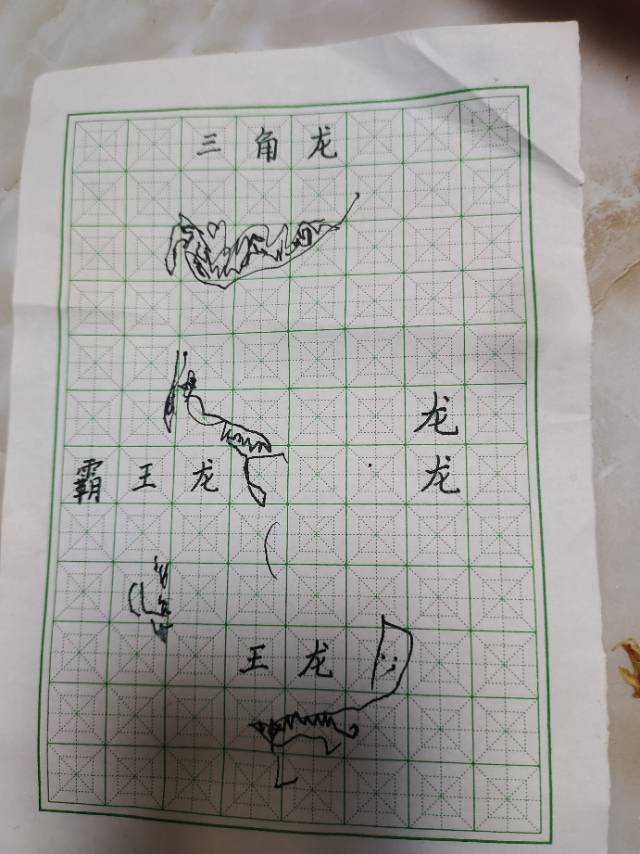 三角龙
龙
霸王龙
龙
王龙